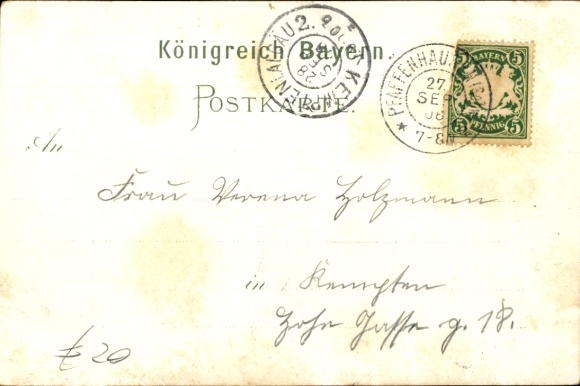 Königreich Bayern.
POSTKARTE.
KEMPTEN i/ALLGÄU 2.
28
SEP
PFAFFENHAUSEN
27
SEP
7-8N
BAYERN
5 5
5 5
PFENNIG
An
Frau Verena Holzmann
in Kempten
Hohe Gasse g. 18.
£20